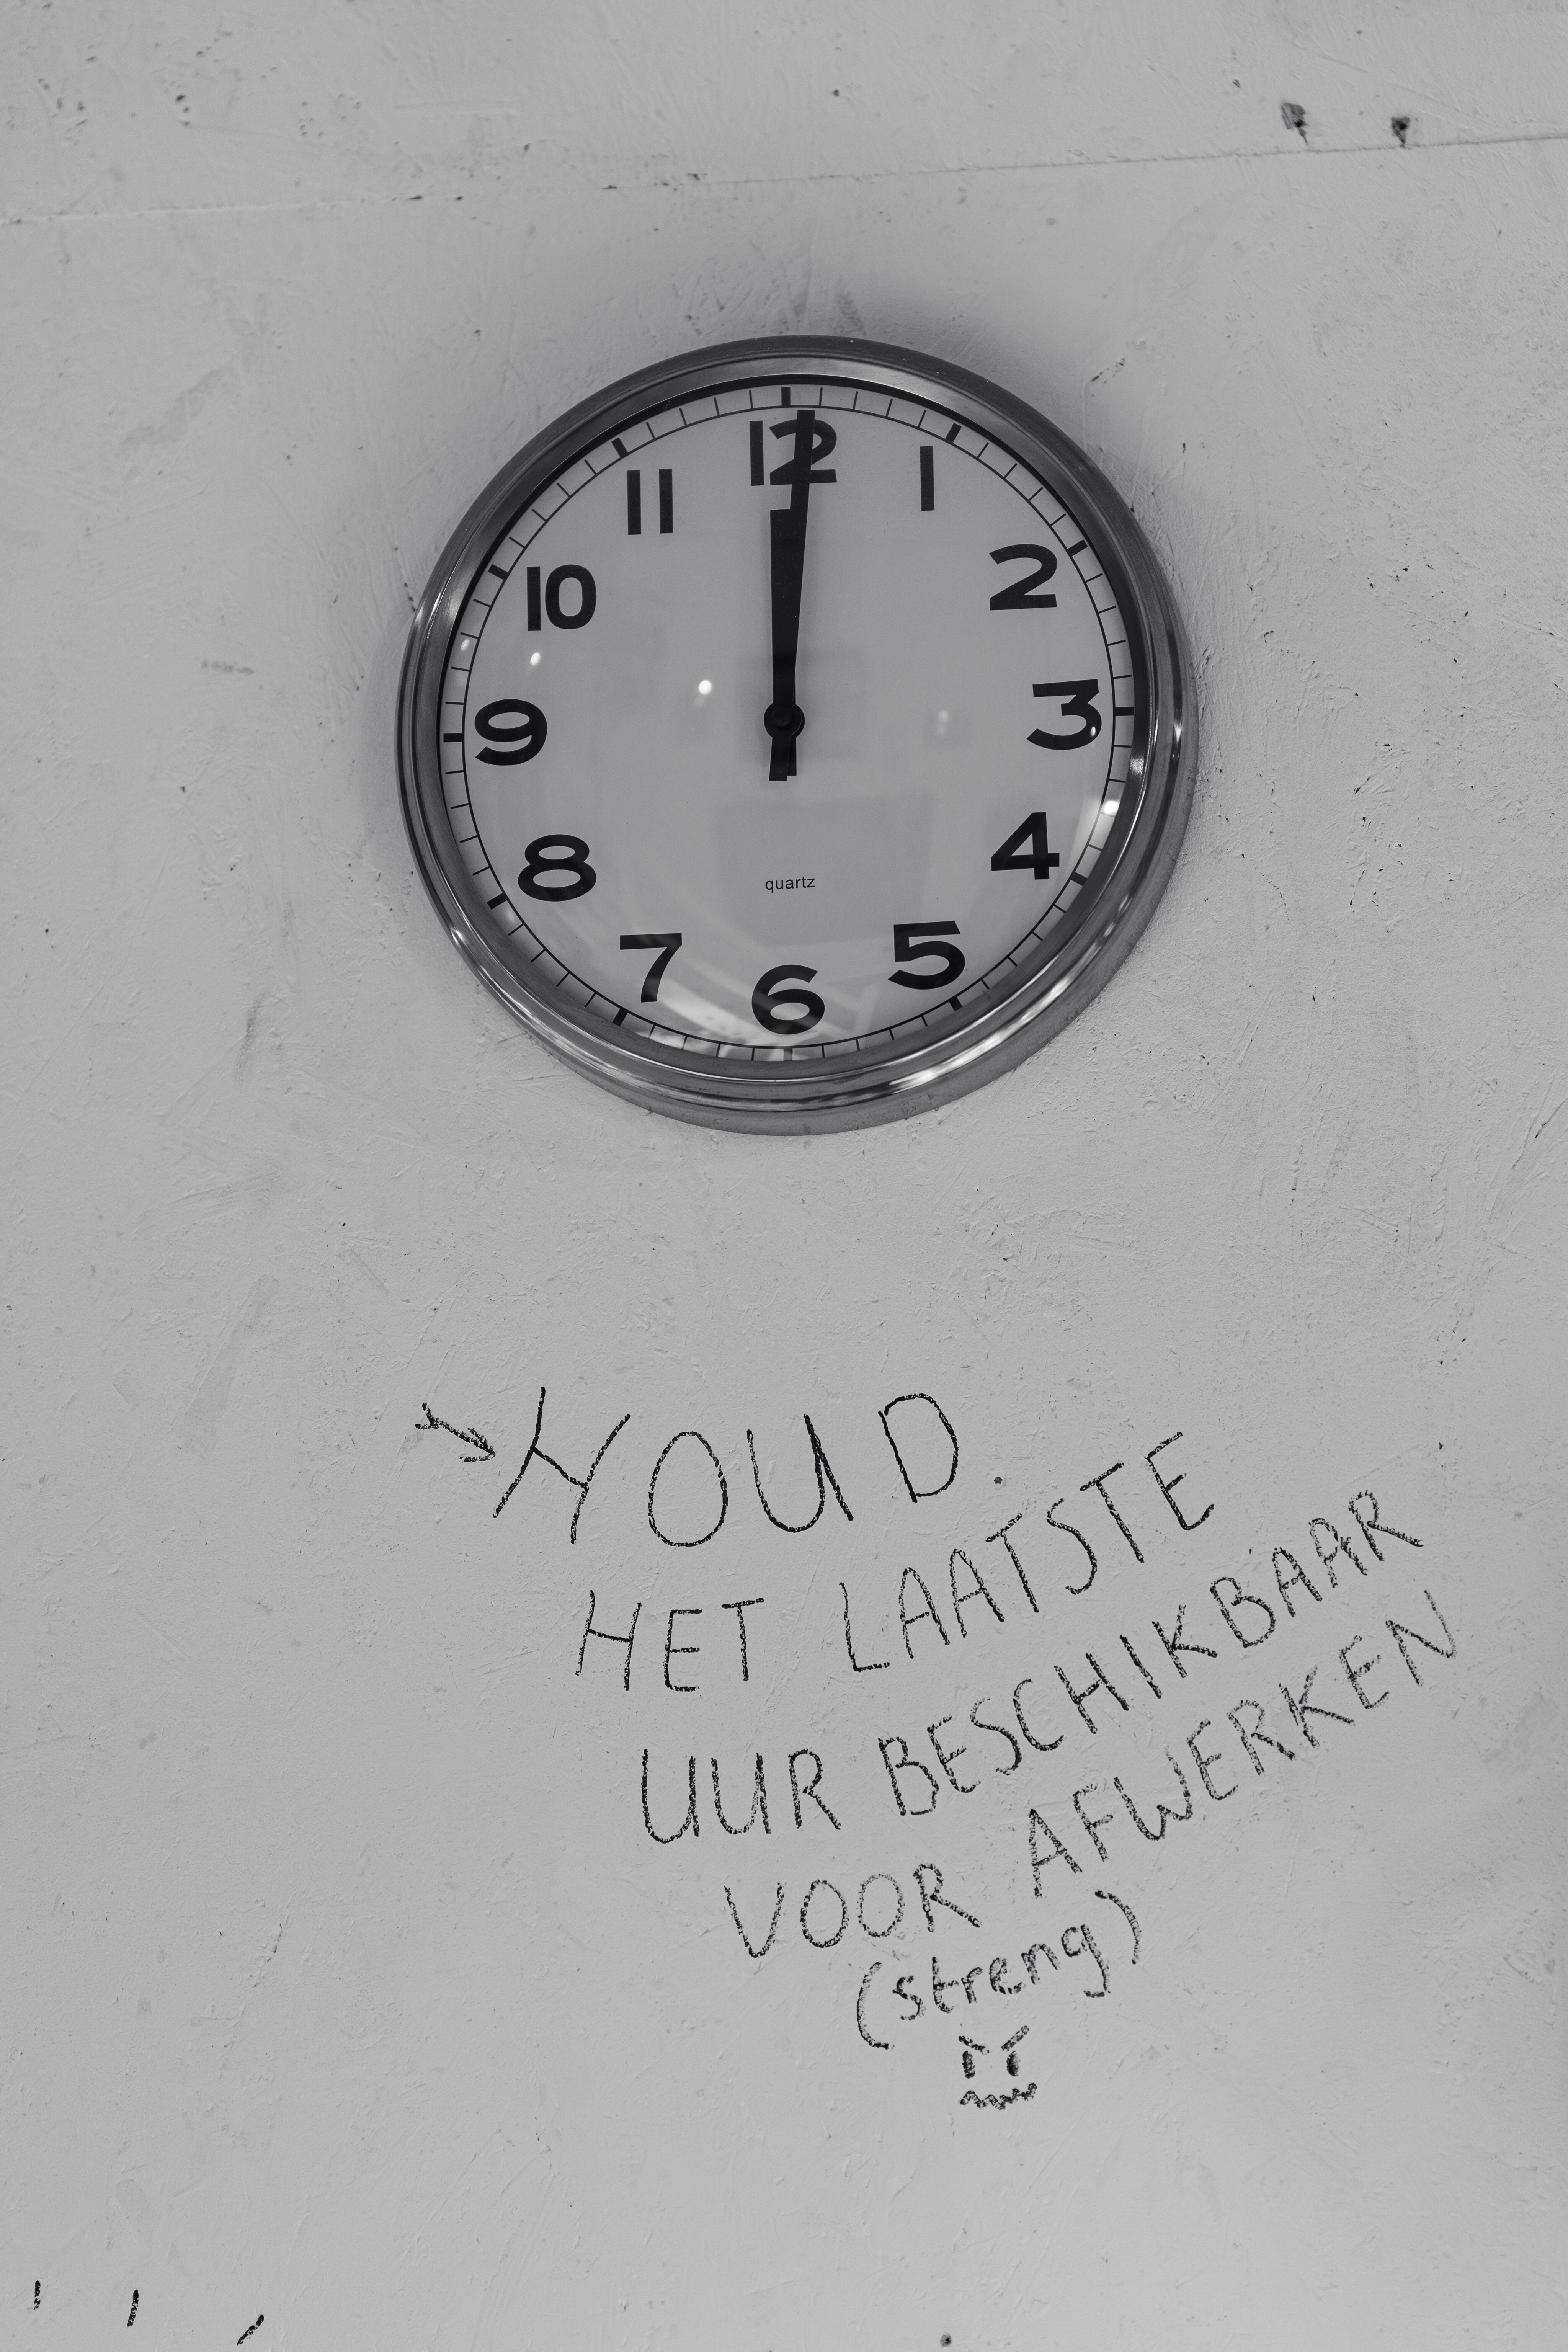 12
11 1
10 2
9 3
8 4
quartz
7 5
6
HOUD
HET LAATSTE
UUR BESCHIKBAAR
VOOR AFWERKEN
(streng)